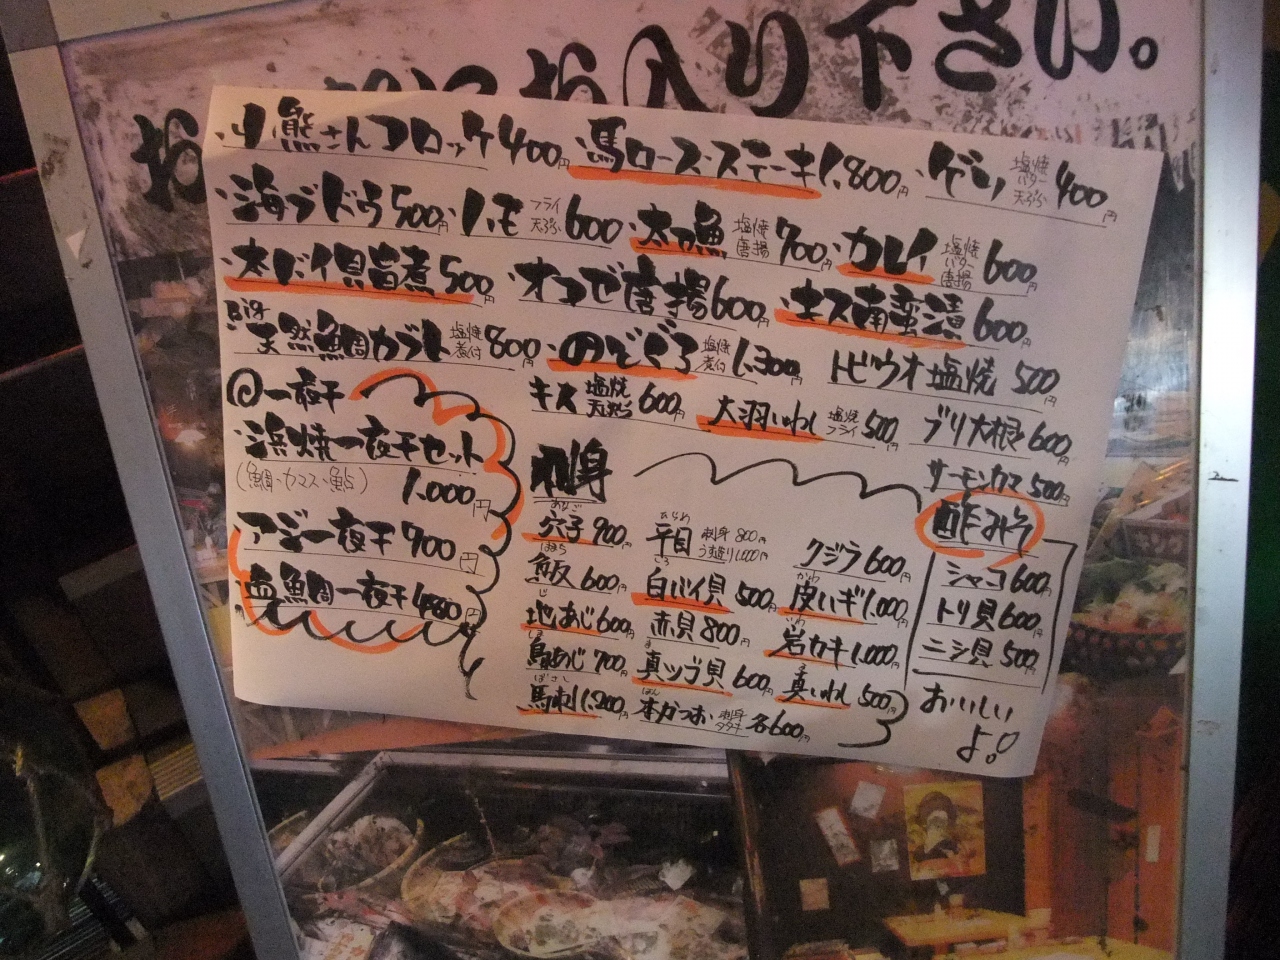 お入り下さい。
・小熊さんコロッケ400円 ・馬ロースステーキ1,800円 ・ゲソ 塩焼 バター 天ぷら 400円
・海ブドウ500円 ・ハモ フライ 天ぷら 600円 ・太刀魚 塩焼 唐揚 700円 ・カレイ 塩焼 バター 唐揚 600円
・大バイ貝旨煮500円 ・オコゼ唐揚600円 ・キス南蛮漬600円
Big
天然鯛カブト 塩焼 煮付 800円 ・のどぐろ 塩焼 煮付 1,300円 トビウオ塩焼 500円
キス 塩焼 天ぷら 600円 大羽いわし 塩焼 フライ 500円 ブリ大根600円
サーモンカマ500円
◎一夜干
・浜焼一夜干セット
(鯛、カマス、鮎)
1,000円
アジ一夜干 700円
鯛一夜干
刺身
あなご
穴子900円
はまち
魚反600円
じ
地あじ600円
しま
島あじ700円
ばさし
馬刺1,200円
ひらめ
平目 刺身 800円 うす造り1,000円
しろ
白バイ貝 500円
赤貝800円
ま
真ツブ貝 600円
ほん
本かつお 刺身 タタキ 各600円
クジラ600円
かわ
皮ハギ1,000円
いわ
岩カキ1,000円
ま
真いわし 500円
酢みそ
シャコ600円
トリ貝600円
ニシ貝500円
おいしい
よ!